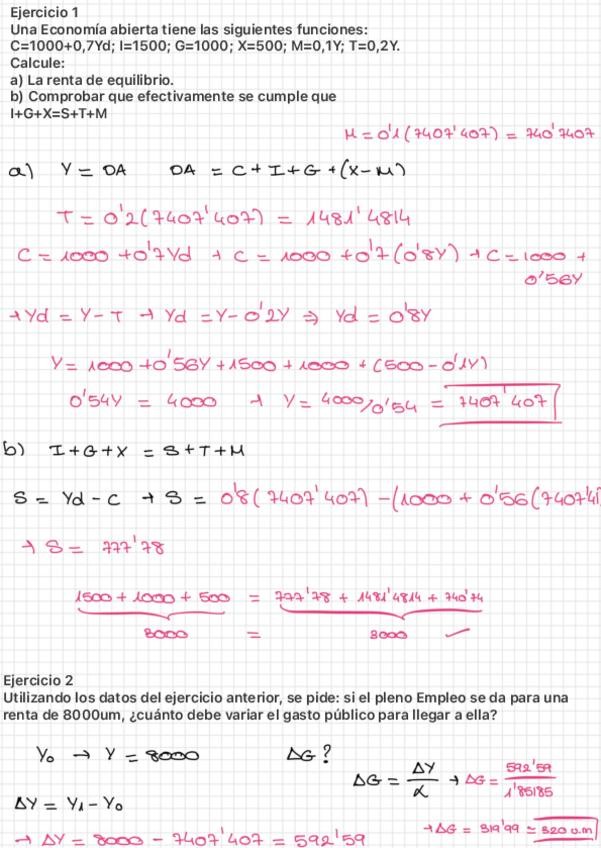 Ejercicio 1
Una Economía abierta tiene las siguientes funciones:
C=1000+0,7Yd; I=1500; G=1000; X=500; M=0,1Y; T=0,2Y.
Calcule:
a) La renta de equilibrio.
b) Comprobar que efectivamente se cumple que
I+G+X=S+T+M
M = 0'1 (7407'407) = 740'7407
a) Y = DA DA = C + I + G + (X - M)
T = 0'2 (7407'407) = 1481'4814
C = 1000 + 0'7Yd → C = 1000 + 0'7 (0'8Y) → C = 1000 +
0'56Y
→ Yd = Y - T → Yd = Y - 0'2Y ⇒ Yd = 0'8Y
Y = 1000 + 0'56Y + 1500 + 1000 + (500 - 0'1Y)
0'54Y = 4000 → Y = 4000/0'54 = 7407'407
b) I + G + X = S + T + M
S = Yd - C → S = 0'8 (7407'407) - (1000 + 0'56 (7407'4
→ S = 777'78
1500 + 1000 + 500 = 777'78 + 1481'4814 + 740'74
3000 = 3000 ✓
Ejercicio 2
Utilizando los datos del ejercicio anterior, se pide: si el pleno Empleo se da para una
renta de 8000um, ¿cuánto debe variar el gasto público para llegar a ella?
Y₀ → Y = 8000 ΔG?
ΔG = ΔY/α → ΔG = 592'59/1'85185
ΔY = Y₁ - Y₀
→ ΔY = 8000 - 7407'407 = 592'59
→ ΔG = 319'99 ≃ 320 u.m